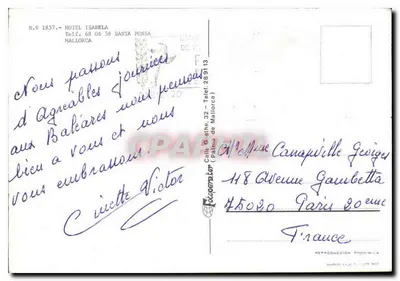 N.º 1857.- HOTEL ISABELA
Telf. 68 06 58 SANTA PONSA
MALLORCA
Nous passons
d'Agreables journées
aux Baléares nous pensons
bien a vous et nous
vous embrassons.
Ginette Victor
Calle Goethe, 32 - Telef. 289113
(Palma de Mallorca)
Mr Mme Canapville Georges
118 Avenue Gambetta
75020 Paris 20eme
France
REPRODUCCION PROHIBIDA